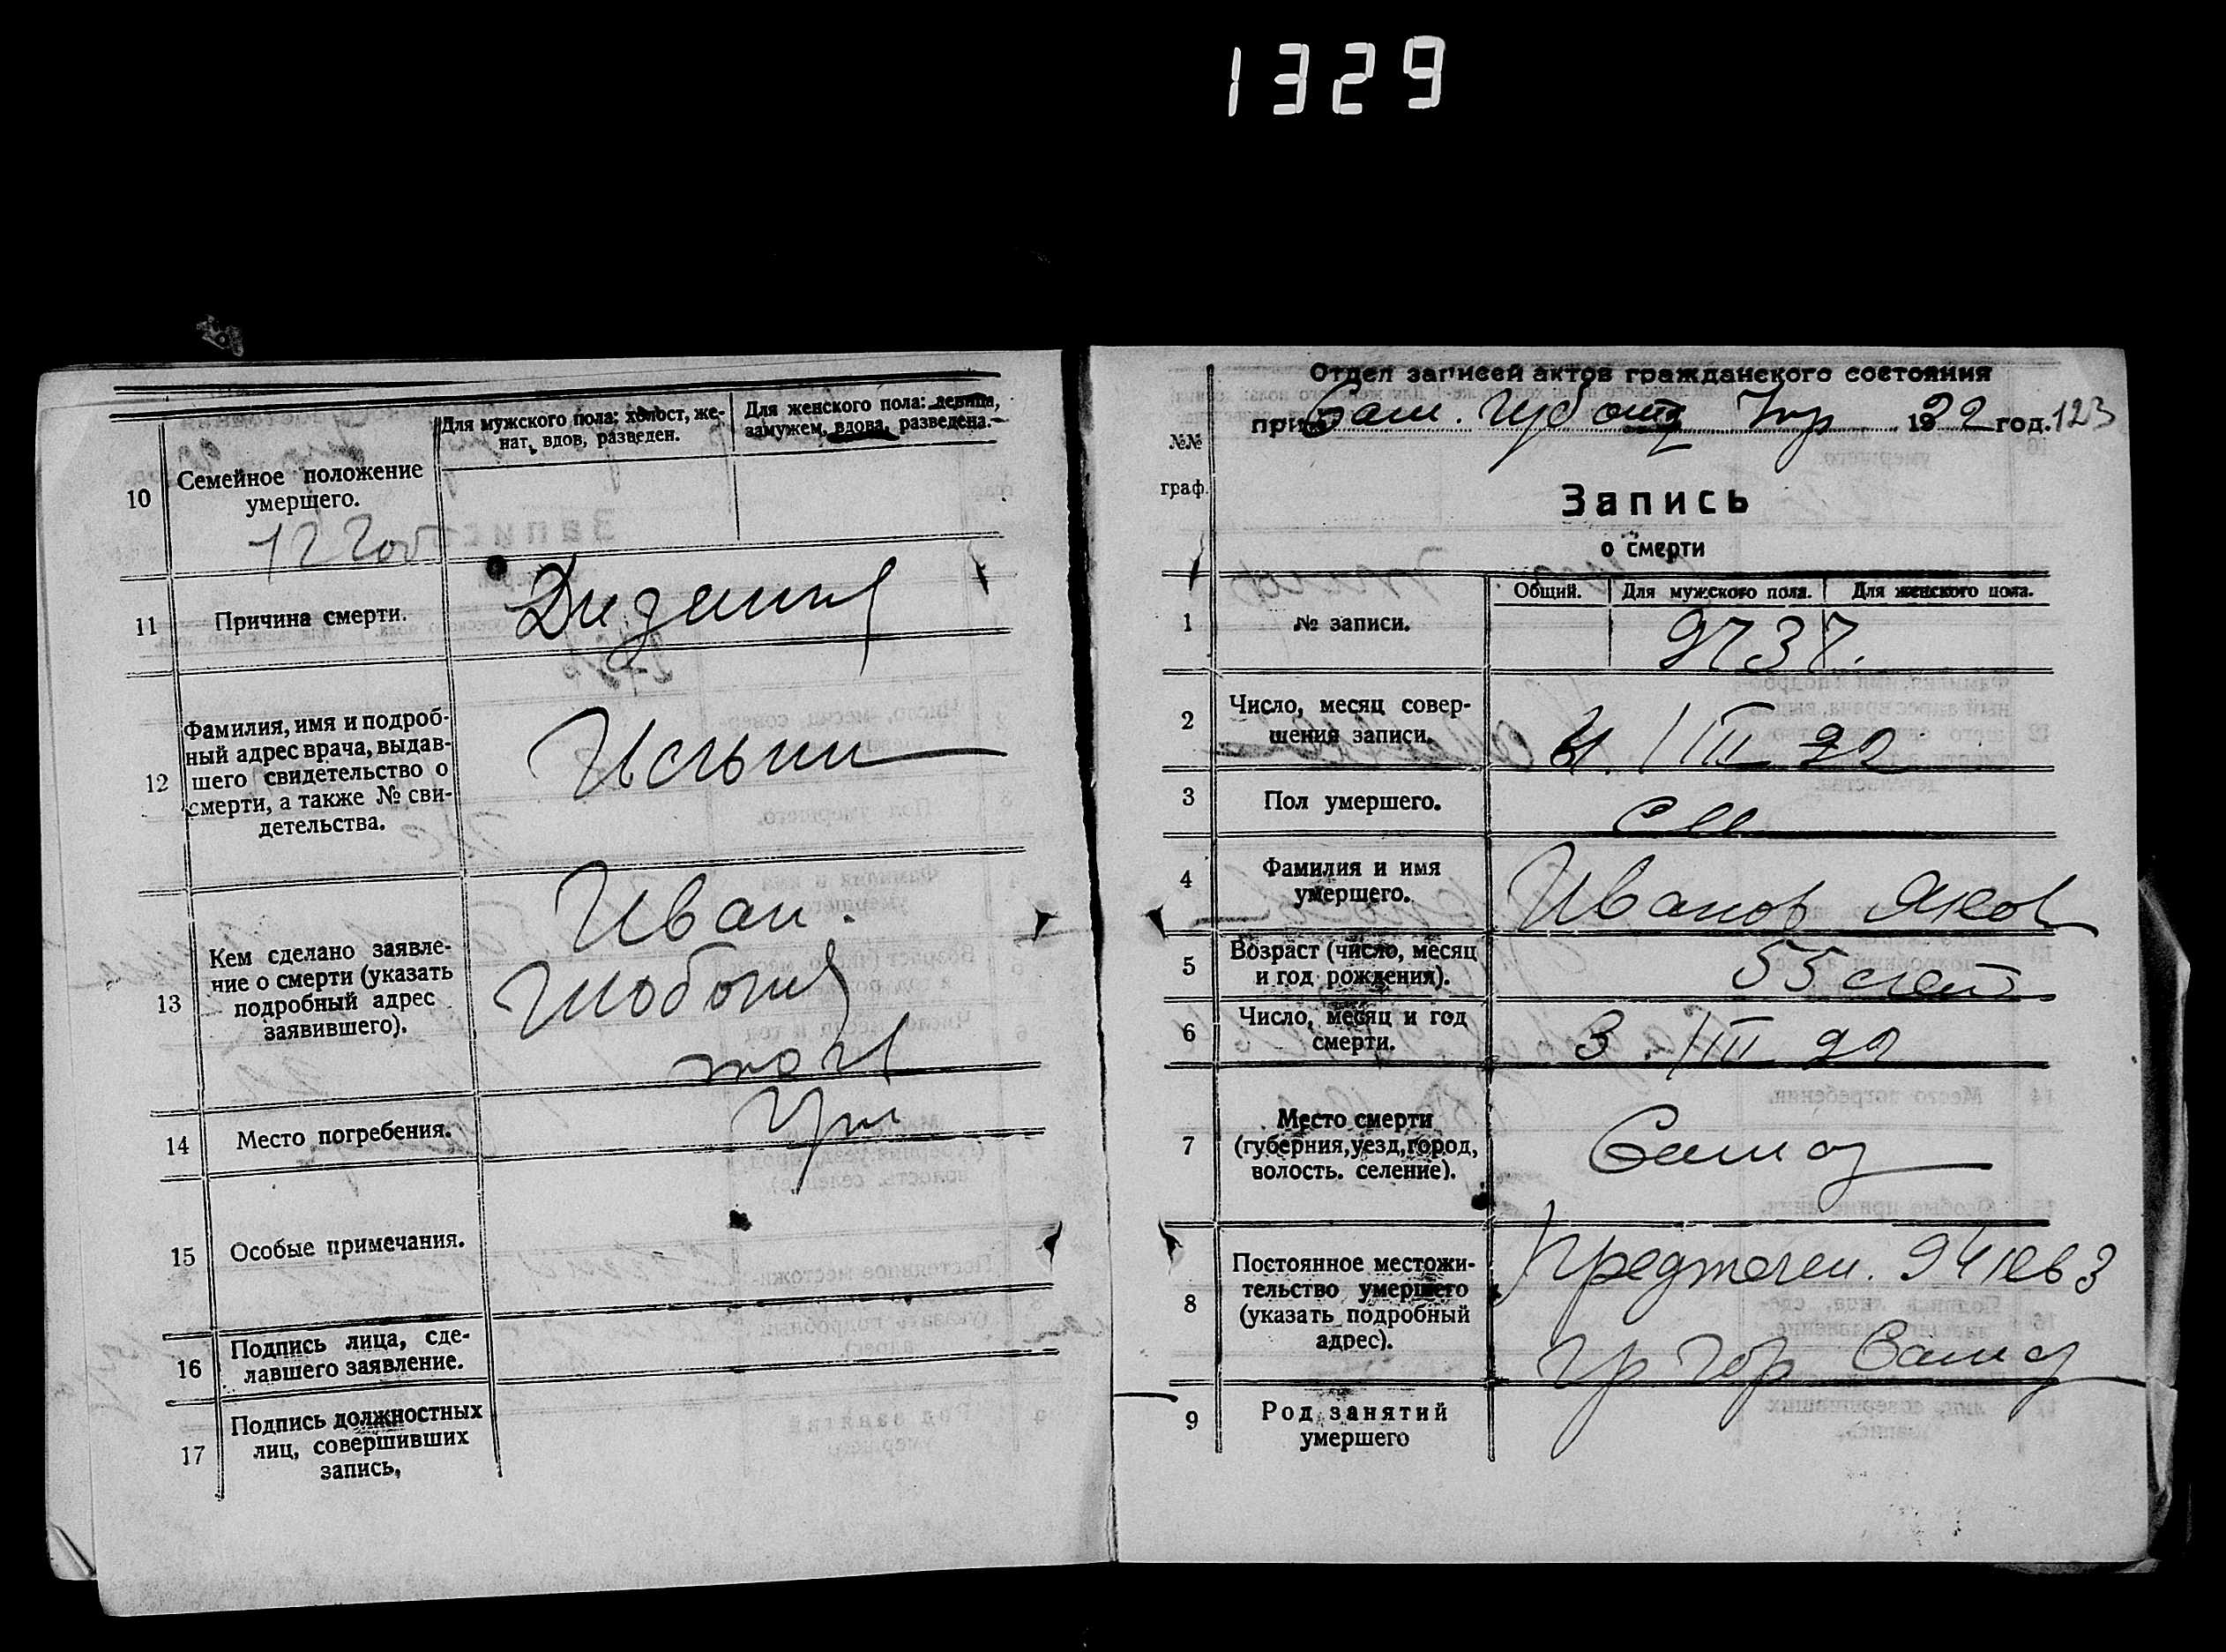 1329
10
Семейное положение
умершего.
Для мужского пола: холост, же-
нат, вдов, разведен.
Для женского пола: девица,
замужем, вдова, разведена.
12 2
11
Причина смерти.
12
Фамилия, имя и подроб-
ный адрес врача, выдав-
шего свидетельство о
смерти, а также № сви-
детельства.
13
Кем сделано заявле-
ние о смерти (указать
подробный адрес
заявившего).
Иван.
14
Место погребения.
15
Особые примечания.
16
Подпись лица, сде-
лавшего заявление.
17
Подпись должностных
лиц, совершивших
запись,
Отдел записей актов гражданского состояния
при Сам. 1922 год. 123
№№
граф.
Запись
о смерти
Общий. Для мужского пола. Для женского пола.
1
№ записи.
2737.
2
Число, месяц совер-
шения записи.
/ III 22
3
Пол умершего.
м
4
Фамилия и имя
умершего.
Иванов Яков
5
Возраст (число, месяц
и год рождения).
55 лет
6
Число, месяц и год
смерти.
3 / III 22
7
Место смерти
(губерния, уезд, город,
волость. селение).
Самар
8
Постоянное местожи-
тельство умершего
(указать подробный
адрес).
Предтечен. 94 кв 3
гр гор Самар
9
Род занятий
умершего